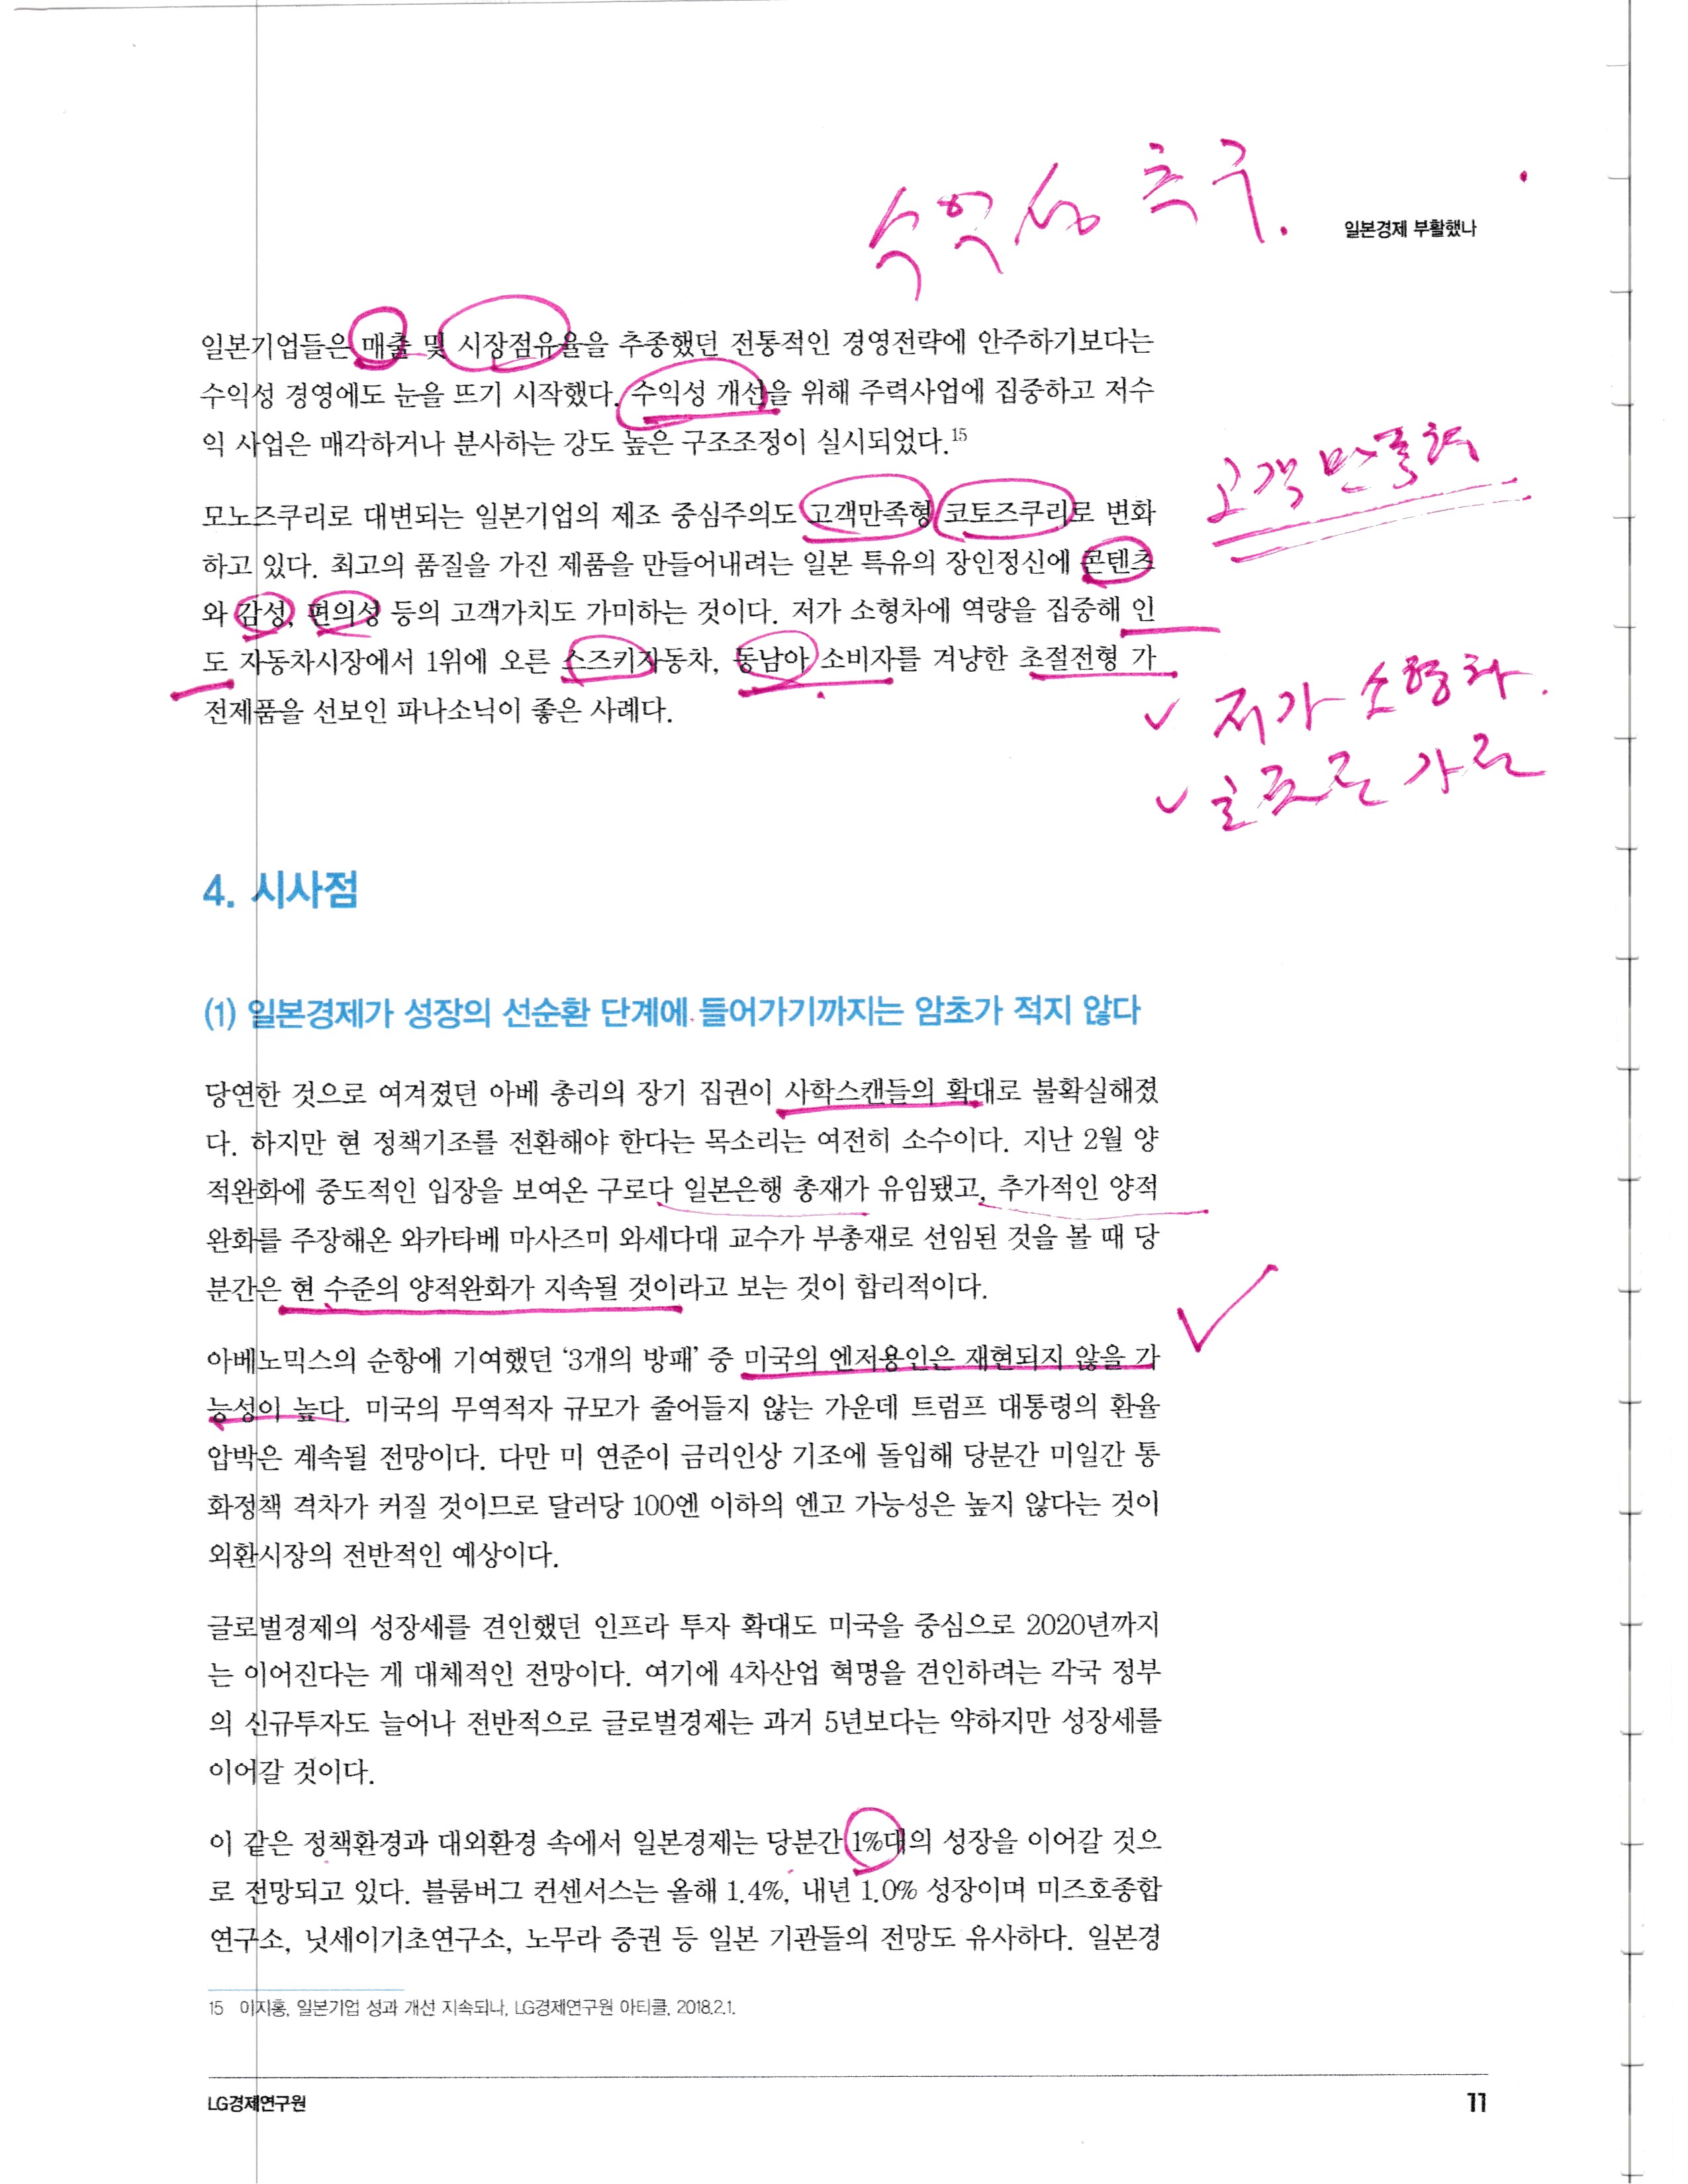 수익성 추구.
일본경제 부활했나
일본기업들은 매출 및 시장점유율을 추종했던 전통적인 경영전략에 안주하기보다는
수익성 경영에도 눈을 뜨기 시작했다. 수익성 개선을 위해 주력사업에 집중하고 저수
익 사업은 매각하거나 분사하는 강도 높은 구조조정이 실시되었다.15
고객만족
모노즈쿠리로 대변되는 일본기업의 제조 중심주의도 고객만족형 코토즈쿠리로 변화
하고 있다. 최고의 품질을 가진 제품을 만들어내려는 일본 특유의 장인정신에 콘텐츠
와 감성, 편의성 등의 고객가치도 가미하는 것이다. 저가 소형차에 역량을 집중해 인
도 자동차시장에서 1위에 오른 스즈키자동차, 동남아 소비자를 겨냥한 초절전형 가
전제품을 선보인 파나소닉이 좋은 사례다.
✓ 저가 소형차.
✓
4. 시사점
(1) 일본경제가 성장의 선순환 단계에 들어가기까지는 암초가 적지 않다
당연한 것으로 여겨졌던 아베 총리의 장기 집권이 사학스캔들의 확대로 불확실해졌
다. 하지만 현 정책기조를 전환해야 한다는 목소리는 여전히 소수이다. 지난 2월 양
적완화에 중도적인 입장을 보여온 구로다 일본은행 총재가 유임됐고, 추가적인 양적
완화를 주장해온 와카타베 마사즈미 와세다대 교수가 부총재로 선임된 것을 볼 때 당
분간은 현 수준의 양적완화가 지속될 것이라고 보는 것이 합리적이다.
아베노믹스의 순항에 기여했던 ‘3개의 방패’ 중 미국의 엔저용인은 재현되지 않을 가
능성이 높다. 미국의 무역적자 규모가 줄어들지 않는 가운데 트럼프 대통령의 환율
압박은 계속될 전망이다. 다만 미 연준이 금리인상 기조에 돌입해 당분간 미일간 통
화정책 격차가 커질 것이므로 달러당 100엔 이하의 엔고 가능성은 높지 않다는 것이
외환시장의 전반적인 예상이다.
글로벌경제의 성장세를 견인했던 인프라 투자 확대도 미국을 중심으로 2020년까지
는 이어진다는 게 대체적인 전망이다. 여기에 4차산업 혁명을 견인하려는 각국 정부
의 신규투자도 늘어나 전반적으로 글로벌경제는 과거 5년보다는 약하지만 성장세를
이어갈 것이다.
이 같은 정책환경과 대외환경 속에서 일본경제는 당분간 1%대의 성장을 이어갈 것으
로 전망되고 있다. 블룸버그 컨센서스는 올해 1.4%, 내년 1.0% 성장이며 미즈호종합
연구소, 닛세이기초연구소, 노무라 증권 등 일본 기관들의 전망도 유사하다. 일본경
15 이지홍, 일본기업 성과 개선 지속되나, LG경제연구원 아티클, 2018.2.1.
LG경제연구원
11